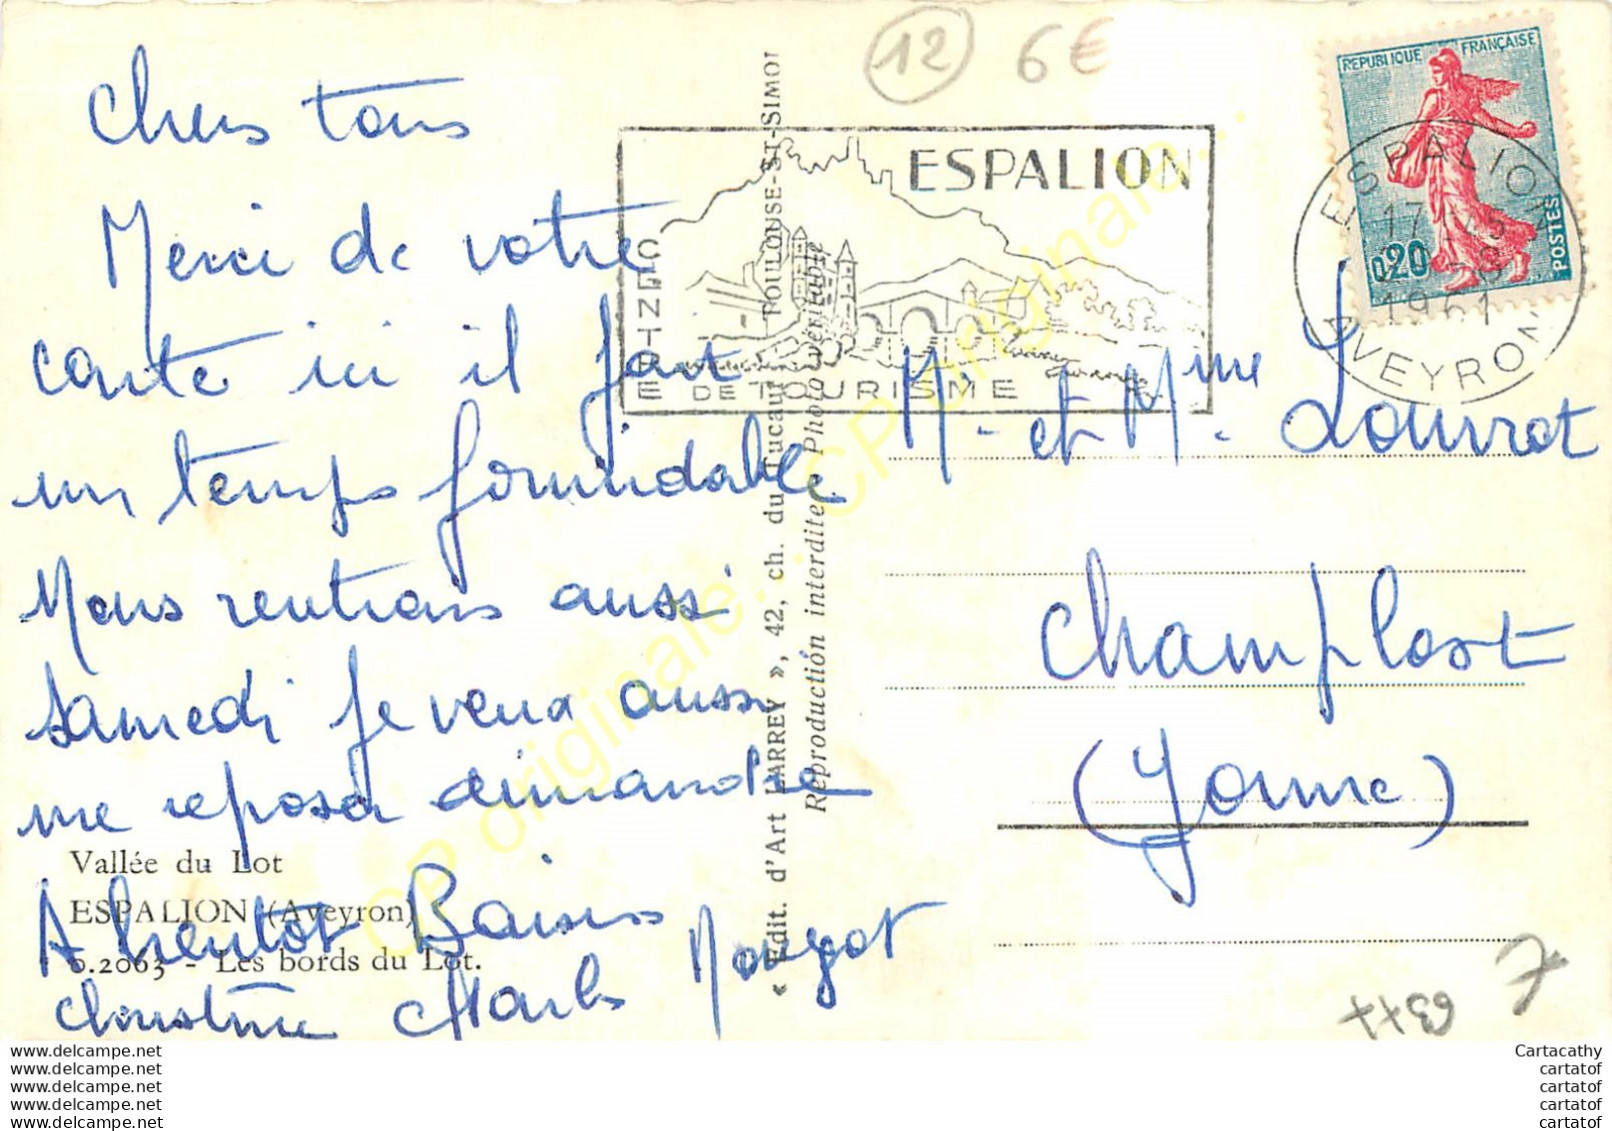 12 6€
Chers tous
Merci de votre
carte ici il fait
un temps formidable
Nous rentrons aussi
samedi je veux aussi
me reposer dimanche
A bientôt Baisers
Christine Charles Nougot
Vallée du Lot
ESPALION (Aveyron)
6.2063 - Les bords du Lot.
« Edit. d'Art LARREY », 42, ch. du Lucaut TOULOUSE-ST-SIMON
Reproduction interdite Photo véritable
ESPALION
CENTRE DE TOURISME
REPUBLIQUE FRANÇAISE
0,20
POSTES
ESPALION
1961
AVEYRON
M. et Mme Lourrot
Champlost
(Yonne)
CP originale... CP originale...
www.delcampe.net
www.delcampe.net
www.delcampe.net
www.delcampe.net
www.delcampe.net
Cartacathy
cartatof
cartatof
cartatof
cartatof